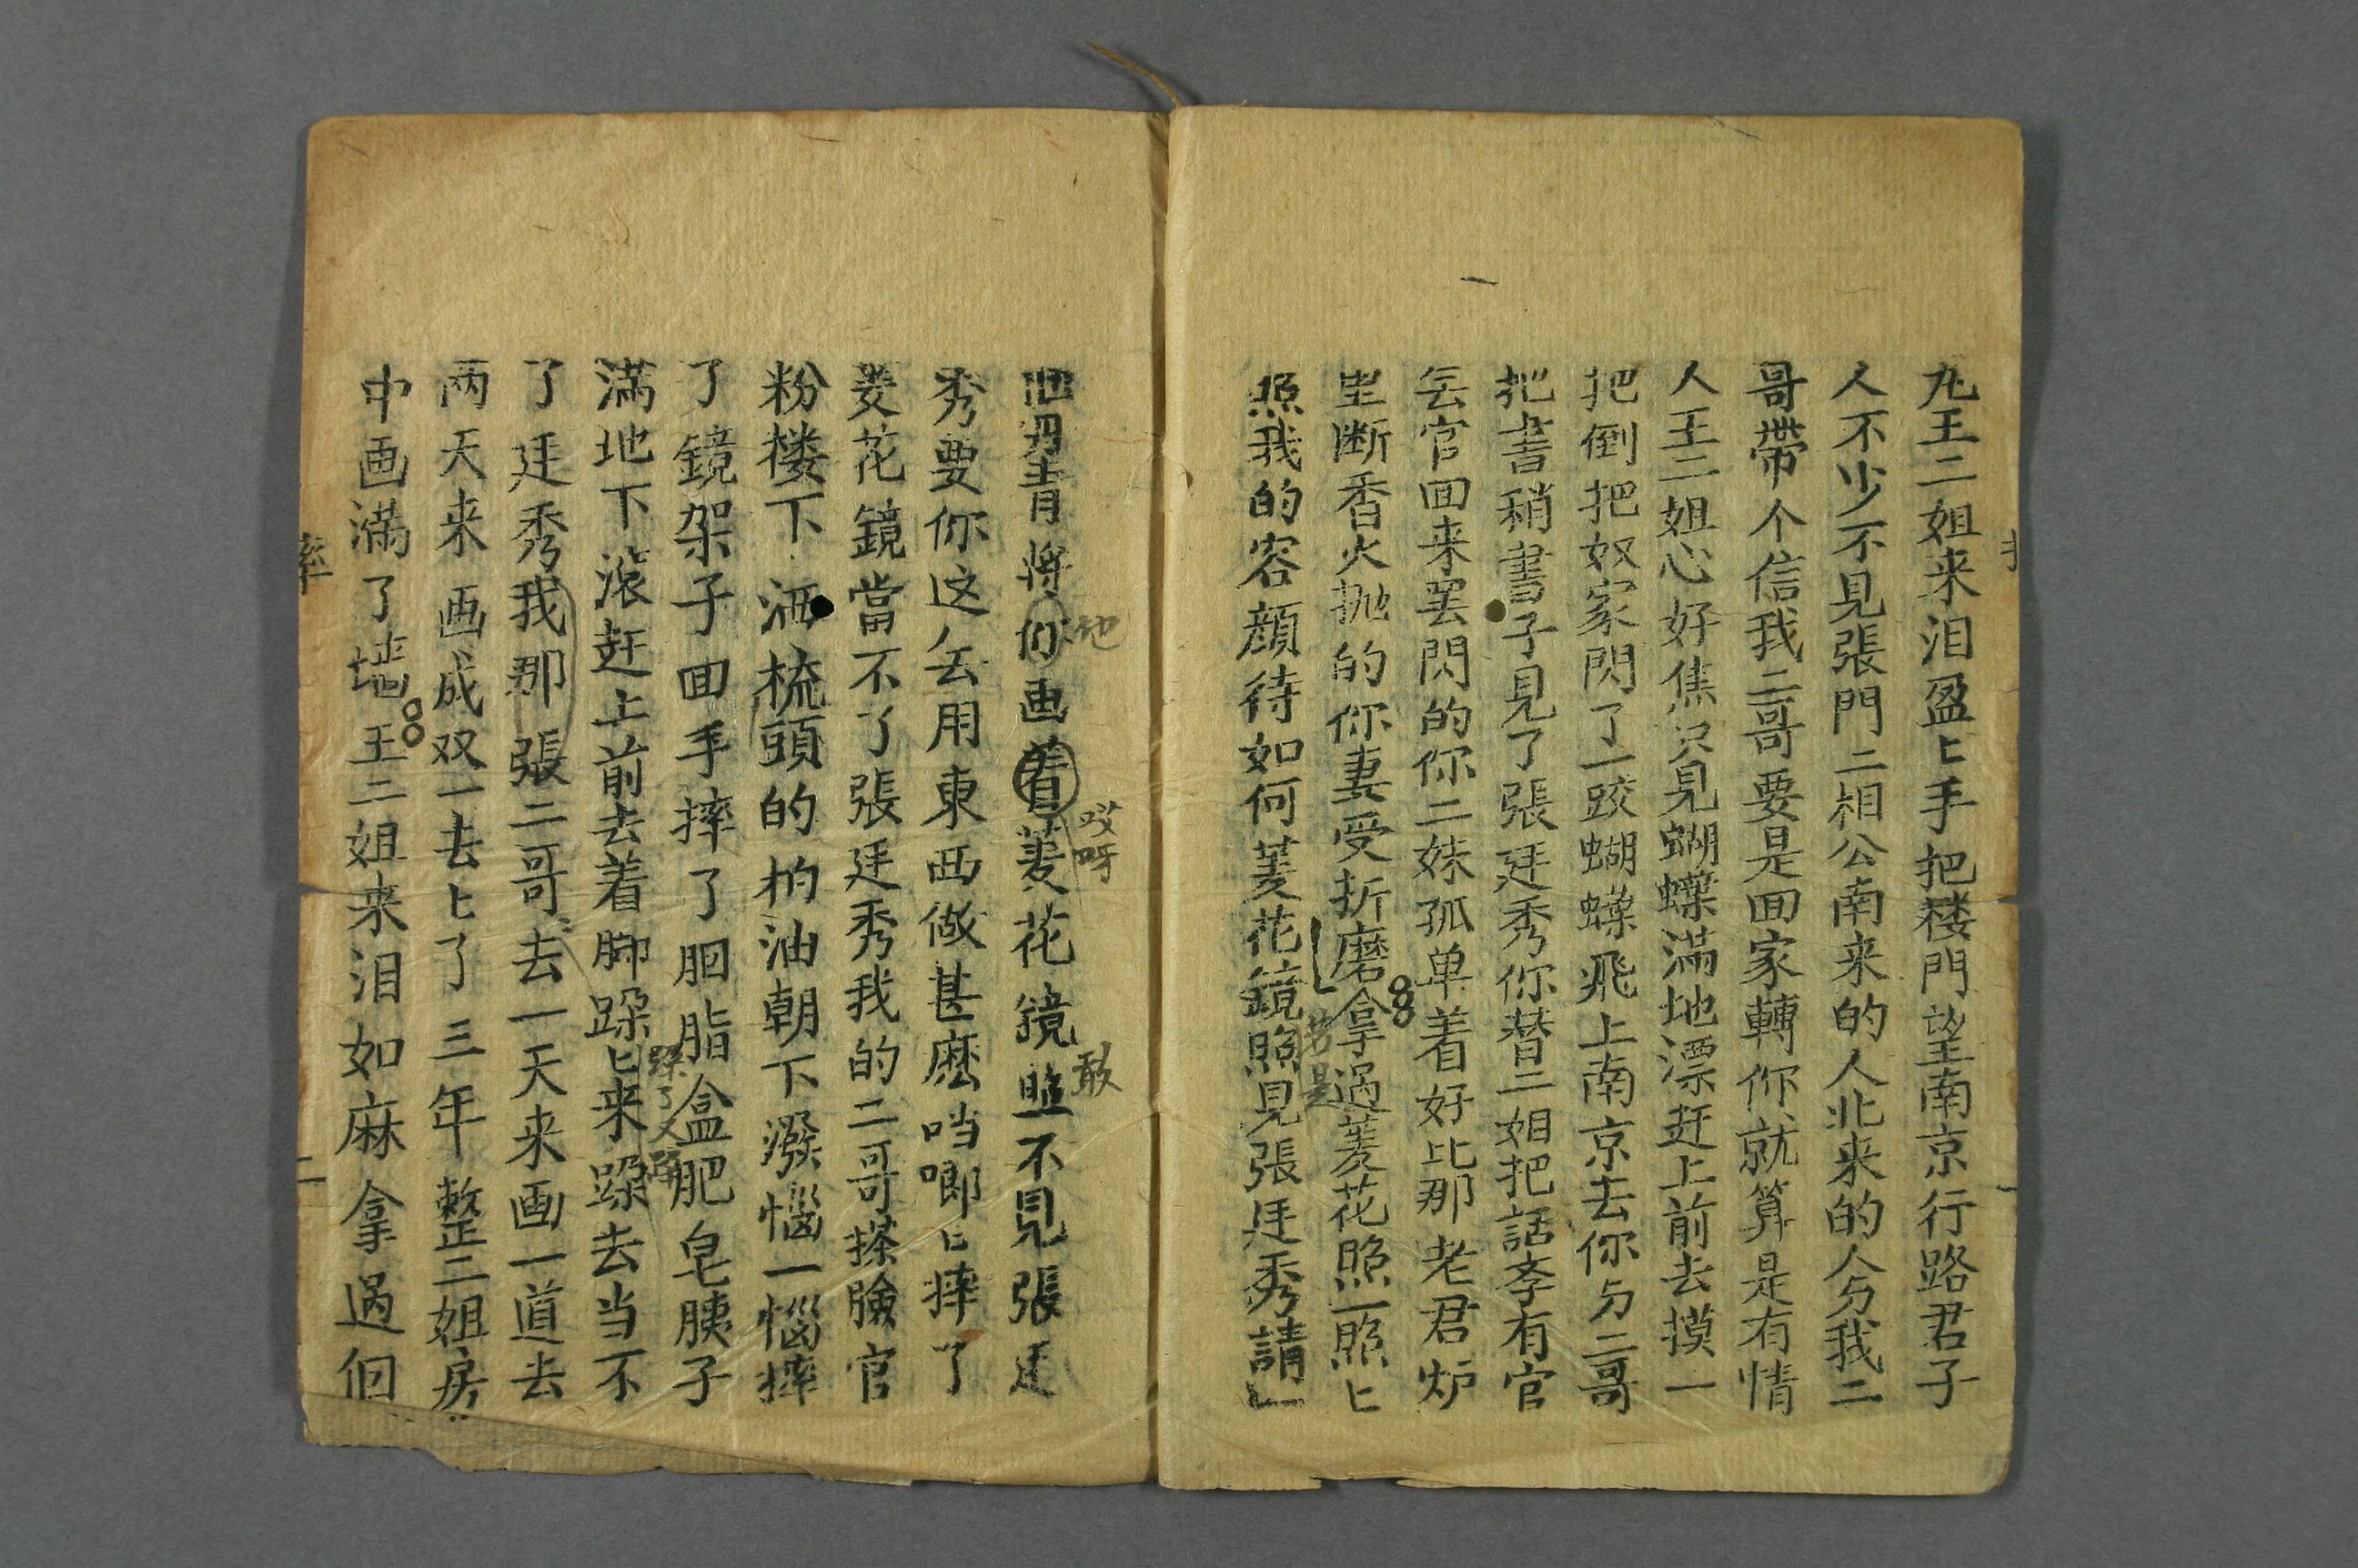 九王二姐来泪盈匕手把楼門望南京行路君子
人不少不見張門二相公南来的人北来的人另我二
哥帶个信我二哥要是囬家轉你就算是有情
人王二姐心好焦只見蝴蝶滿地漂赶上前去摸一
把倒把奴家閃了一跤蝴蝶飛上南京去你另二哥
把書稍書子見了張廷秀你替二姐把話李有官
無官囬来罢閃的你二妹孤单着好比那老君炉
里断香火抛的你妻受折磨拿過菱花照一照匕
若是
照我的容顔待如何菱花鏡照見張廷秀請
丹青將你画着菱花鏡照不見張廷
他
哎呀
敢
秀要你这么用東西做甚麽当啷匕摔了
菱花鏡當不了張廷秀我的二哥搽臉官
粉楼下洒梳頭的柏油朝下潑惱一惱摔
了鏡架子囬手摔了胭脂盒肥皂胰子
滿地下滚赶上前去着脚跺匕来跺去当不
跺了又跺
了廷秀我那張二哥去一天来画一道去
两天来画成双一去匕了三年整二姐房
中画滿了墙王二姐来泪如麻拿過個
摔
二